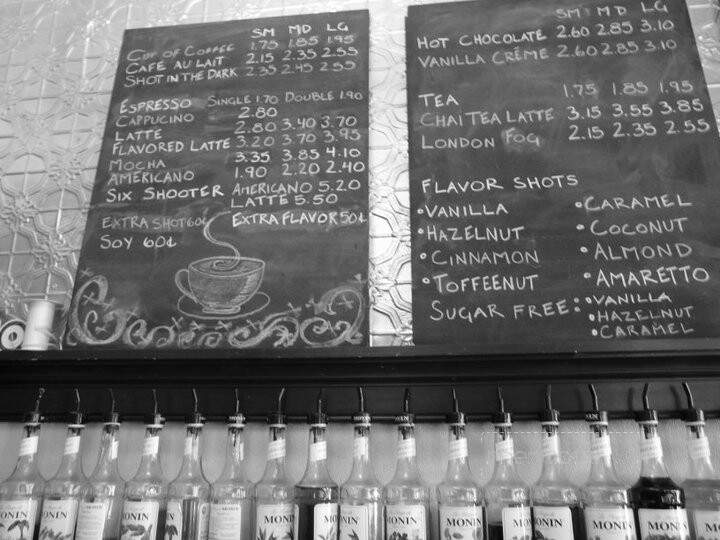 SM MD LG
CUP OF COFFEE 1.75 1.85 1.95
CAFE AU LAIT 2.15 2.35 2.55
SHOT IN THE DARK 2.35 2.45 2.55
ESPRESSO SINGLE 1.70 DOUBLE 1.90
CAPPUCINO 2.80
LATTE 2.80 3.40 3.70
FLAVORED LATTE 3.20 3.70 3.95
MOCHA 3.35 3.85 4.10
AMERICANO 1.90 2.20 2.40
SIX SHOOTER AMERICANO 5.20
LATTE 5.50
EXTRA SHOT 60¢ EXTRA FLAVOR 50¢
SOY 60¢
SM MD LG
HOT CHOCOLATE 2.60 2.85 3.10
VANILLA CRÉME 2.60 2.85 3.10
TEA 1.75 1.85 1.95
CHAI TEA LATTE 3.15 3.55 3.85
LONDON FOG 2.15 2.35 2.55
FLAVOR SHOTS
•VANILLA •CARAMEL
•HAZELNUT •COCONUT
•CINNAMON •ALMOND
•TOFFEENUT •AMARETTO
SUGAR FREE: •VANILLA
•HAZELNUT
•CARAMEL
MONIN
MONIN
MONIN
MONIN
MONIN
MONIN
MONIN
MONIN
MONIN
MONIN
MONIN